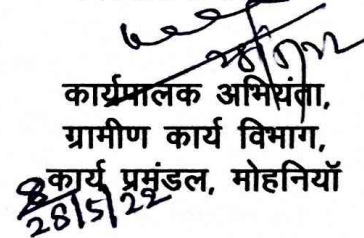 28/5/22
कार्यपालक अभियंता,
ग्रामीण कार्य विभाग,
कार्य प्रमंडल, मोहनियॉ
28/5/22